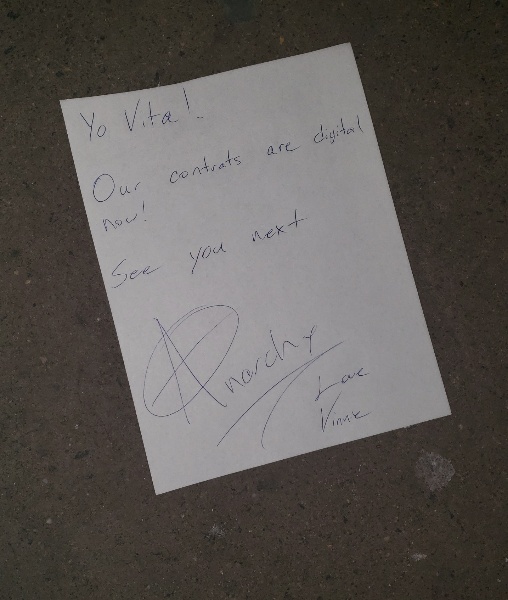 Yo Vita!
Our contrats are digital
now!
See you next
Anarchy
Love
Vinnie